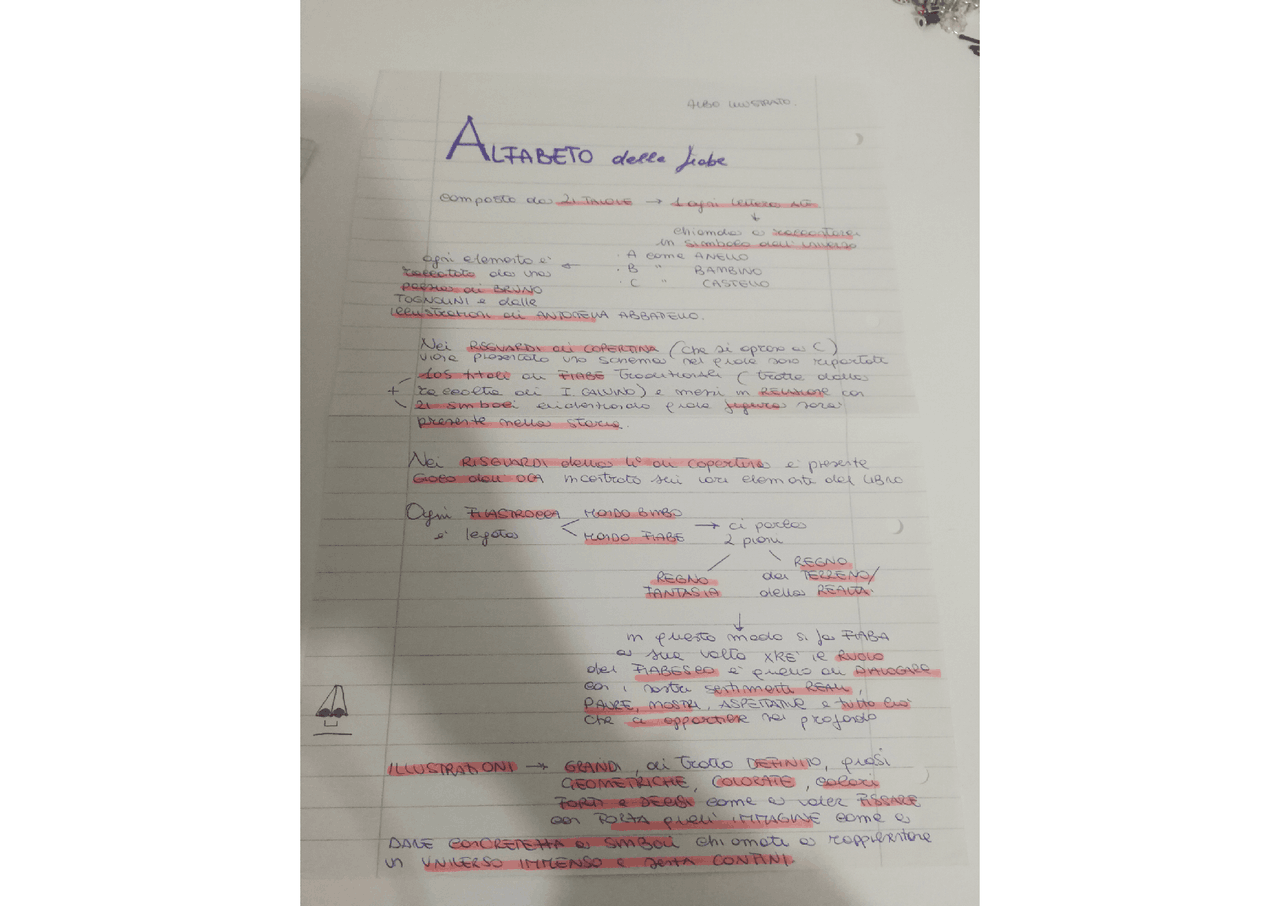 ALBO ILLUSTRATO.
ALFABETO delle fiabe
composto da 21 TAVOLE → 1 ogni lettera ALF
↓
chiamata a raccontare
un simbolo dell'universo
ogni elemento è ← · A come ANELLO
raccontato da una · B " BAMBINO
poesia di BRUNO · C " CASTELLO
TOGNOLINI e dalle
illustrazioni di ANTONELLA ABBATIELLO.
Nei RISGUARDI di COPERTINA (che si aprono a C)
viene presentato uno schema nel quale sono riportati
i titoli di FIABE Tradizionali (tratte dalla
+ raccolta di I. CALVINO) e messi in RELAZIONE con
21 simboli evidenziando quale figura sarà
presente nella storia.
Nei RISGUARDI della 4° di copertina è presente
GIOCO dell'OCA incentrato sui vari elementi del LIBRO
Ogni FILASTROCCA < MONDO BIMBO
è legata MONDO FIABE → ci porta
2 piani
REGNO FANTASIA
REGNO
del TERRENO/
della REALTÀ
↓
in questo modo si fa FIABA
a sua volta XKÈ il RUOLO
del FIABESCO è quello di DIALOGARE
con i nostri sentimenti REALI,
PAURE, MOSTRI, ASPETTATIVE e tutto ciò
che ci appartiene nel profondo
ILLUSTRAZIONI → GRANDI, di tratto DEFINITO, quasi
GEOMETRICHE, COLORATE, colori
FORTI e DECISI come a voler FISSARE
con FORZA quell'IMMAGINE come a
DARE CONCRETEZZA a SIMBOLI chiamati a rappresentare
un UNIVERSO IMMENSO e senza CONFINI.